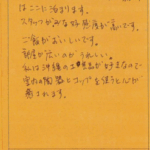 はここに泊まります。
スタッフがみな好感度が高いです。
ご飯がおいしいです。
部屋が広いのがうれしい。
私は沖縄の工芸品が好きなので
室内の陶器とコップを使うと心が
癒されます。